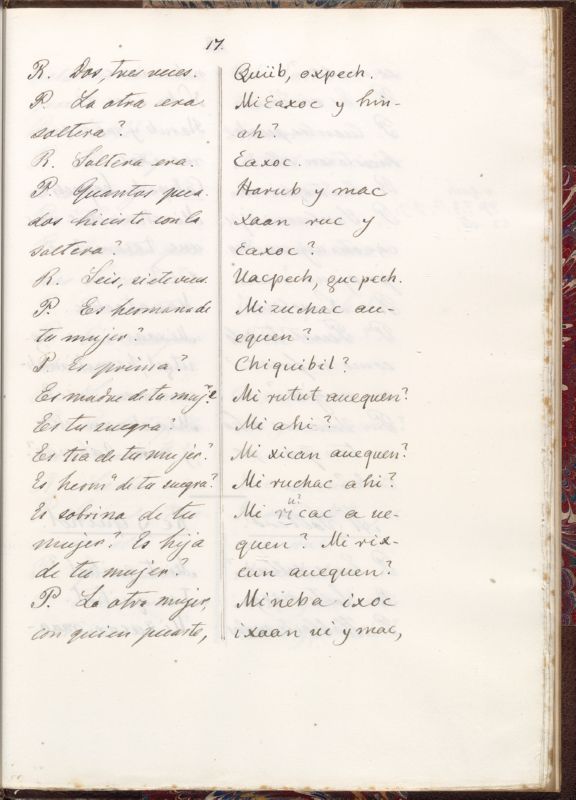 17.
R. Dos, tres veces.
P. La otra era
soltera?
R. Soltera era.
P. Quantos peca-
dos hiciste con la
soltera?
R. Seis, siete veces.
P. Es hermana de
tu mujer?
P. Es prima?
Es madre de tu muj.ʳ?
Es tu suegra?
Es tia de tu mujer?
Es herm.ᵃ de tu suegra?
Es sobrina de tu
mujer? Es hija
de tu mujer?
P. La otra mujer,
con quien pecaste,
Quiib, oxpech.
Mi Eaxoc y hin-
ah?
Eaxoc.
Harub y mac
xaan ruc y
Eaxoc?
Uacpech, zucpech.
Mi zuchac au-
equen?
Chiquibil?
Mi rutut auequen?
Mi ahi?
Mi xican auequen?
Mi ruchac ahi?
Mi ricac a ue-
quen? Mi rix-
cun auequen?
Mi neba ixoc
ixaan ui y mac,